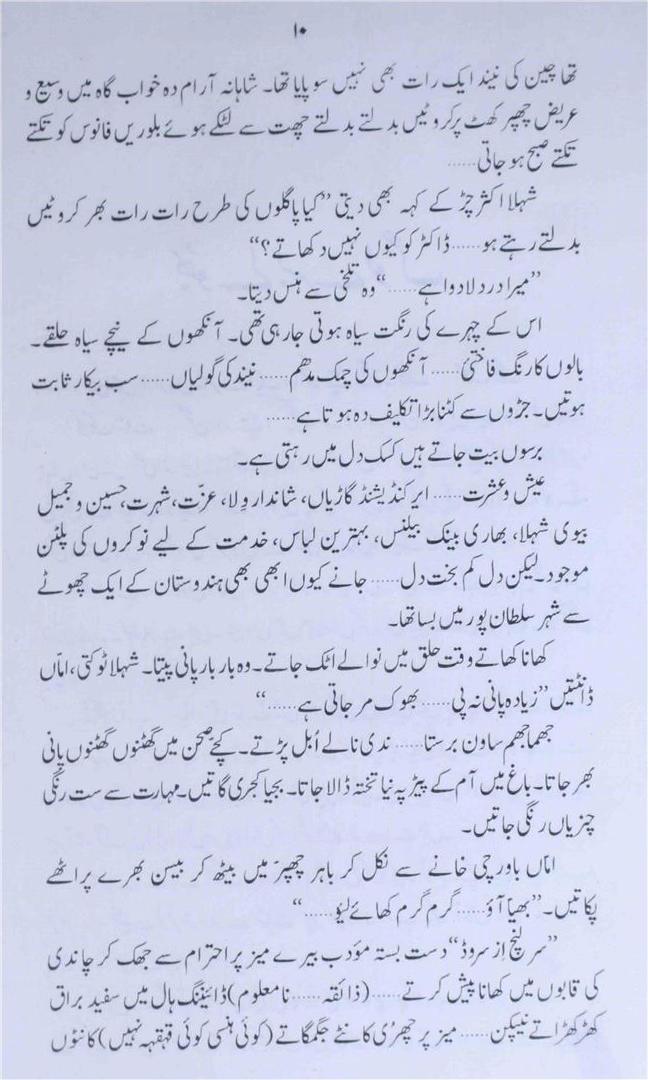 ۱۰
تھا چین کی نیند ایک رات بھی نہیں سو پایا تھا۔ شاہانہ آرام دہ خواب گاہ میں وسیع و
عریض چھپر کھٹ پر کروٹیں بدلتے بدلتے چھت سے لٹکے ہوئے بلوریں فانوس کو تکتے
تکتے صبح ہو جاتی......
شہلا اکثر چڑ کے کہہ بھی دیتی ”کیا پاگلوں کی طرح رات رات بھر کروٹیں
بدلتے رہتے ہو...... ڈاکٹر کو کیوں نہیں دکھاتے؟“
”میرا درد لا دوا ہے......“ وہ تلخی سے ہنس دیتا۔
اس کے چہرے کی رنگت سیاہ ہوتی جا رہی تھی۔ آنکھوں کے نیچے سیاہ حلقے۔
بالوں کا رنگ فاختئ...... آنکھوں کی چمک مدھم...... نیند کی گولیاں...... سب بیکار ثابت
ہوتیں۔ جڑوں سے کٹنا بڑا تکلیف دہ ہوتا ہے......
برسوں بیت جاتے ہیں کسک دل میں رہتی ہے۔
عیش و عشرت...... ایر کنڈیشنڈ گاڑیاں، شاندار وِلا، عزّت، شہرت، حسین و جمیل
بیوی شہلا، بھاری بینک بیلنس، بہترین لباس، خدمت کے لیے نوکروں کی پلٹن
موجود۔ لیکن دل کم بخت دل...... جانے کیوں ابھی بھی ہندوستان کے ایک چھوٹے
سے شہر سلطان پور میں بسا تھا۔
کھانا کھاتے وقت حلق میں نوالے اٹک جاتے۔ وہ بار بار پانی پیتا۔ شہلا ٹوکتی، امّاں
ڈانٹتیں ”زیادہ پانی نہ پی...... بھوک مر جاتی ہے......“
جھما جھم ساون برستا...... ندی نالے اُبل پڑتے۔ کچے صحن میں گھٹنوں گھٹنوں پانی
بھر جاتا۔ باغ میں آم کے پیڑ پہ نیا تختہ ڈالا جاتا۔ بجیا کجری گاتیں۔ مہارت سے ست رنگی
چنریاں رنگی جاتیں۔
امّاں باورچی خانے سے نکل کر باہر چھپّر میں بیٹھ کر بیسن بھرے پراٹھے
پکاتیں۔ ”بھیّا آؤ...... گرم گرم کھائے لیؤ......“
”سر لنچ اِز سروڈ“ دست بستہ مؤدب بیرے میز پر احترام سے جھک کر چاندی
کی قابوں میں کھانا پیش کرتے...... (ذائقہ...... نامعلوم) ڈائیننگ ہال میں سفید براق
کھڑکھڑاتے نیپکن...... میز پر چھری کانٹے جگمگاتے (کوئی ہنسی کوئی قہقہہ نہیں) کانٹوں